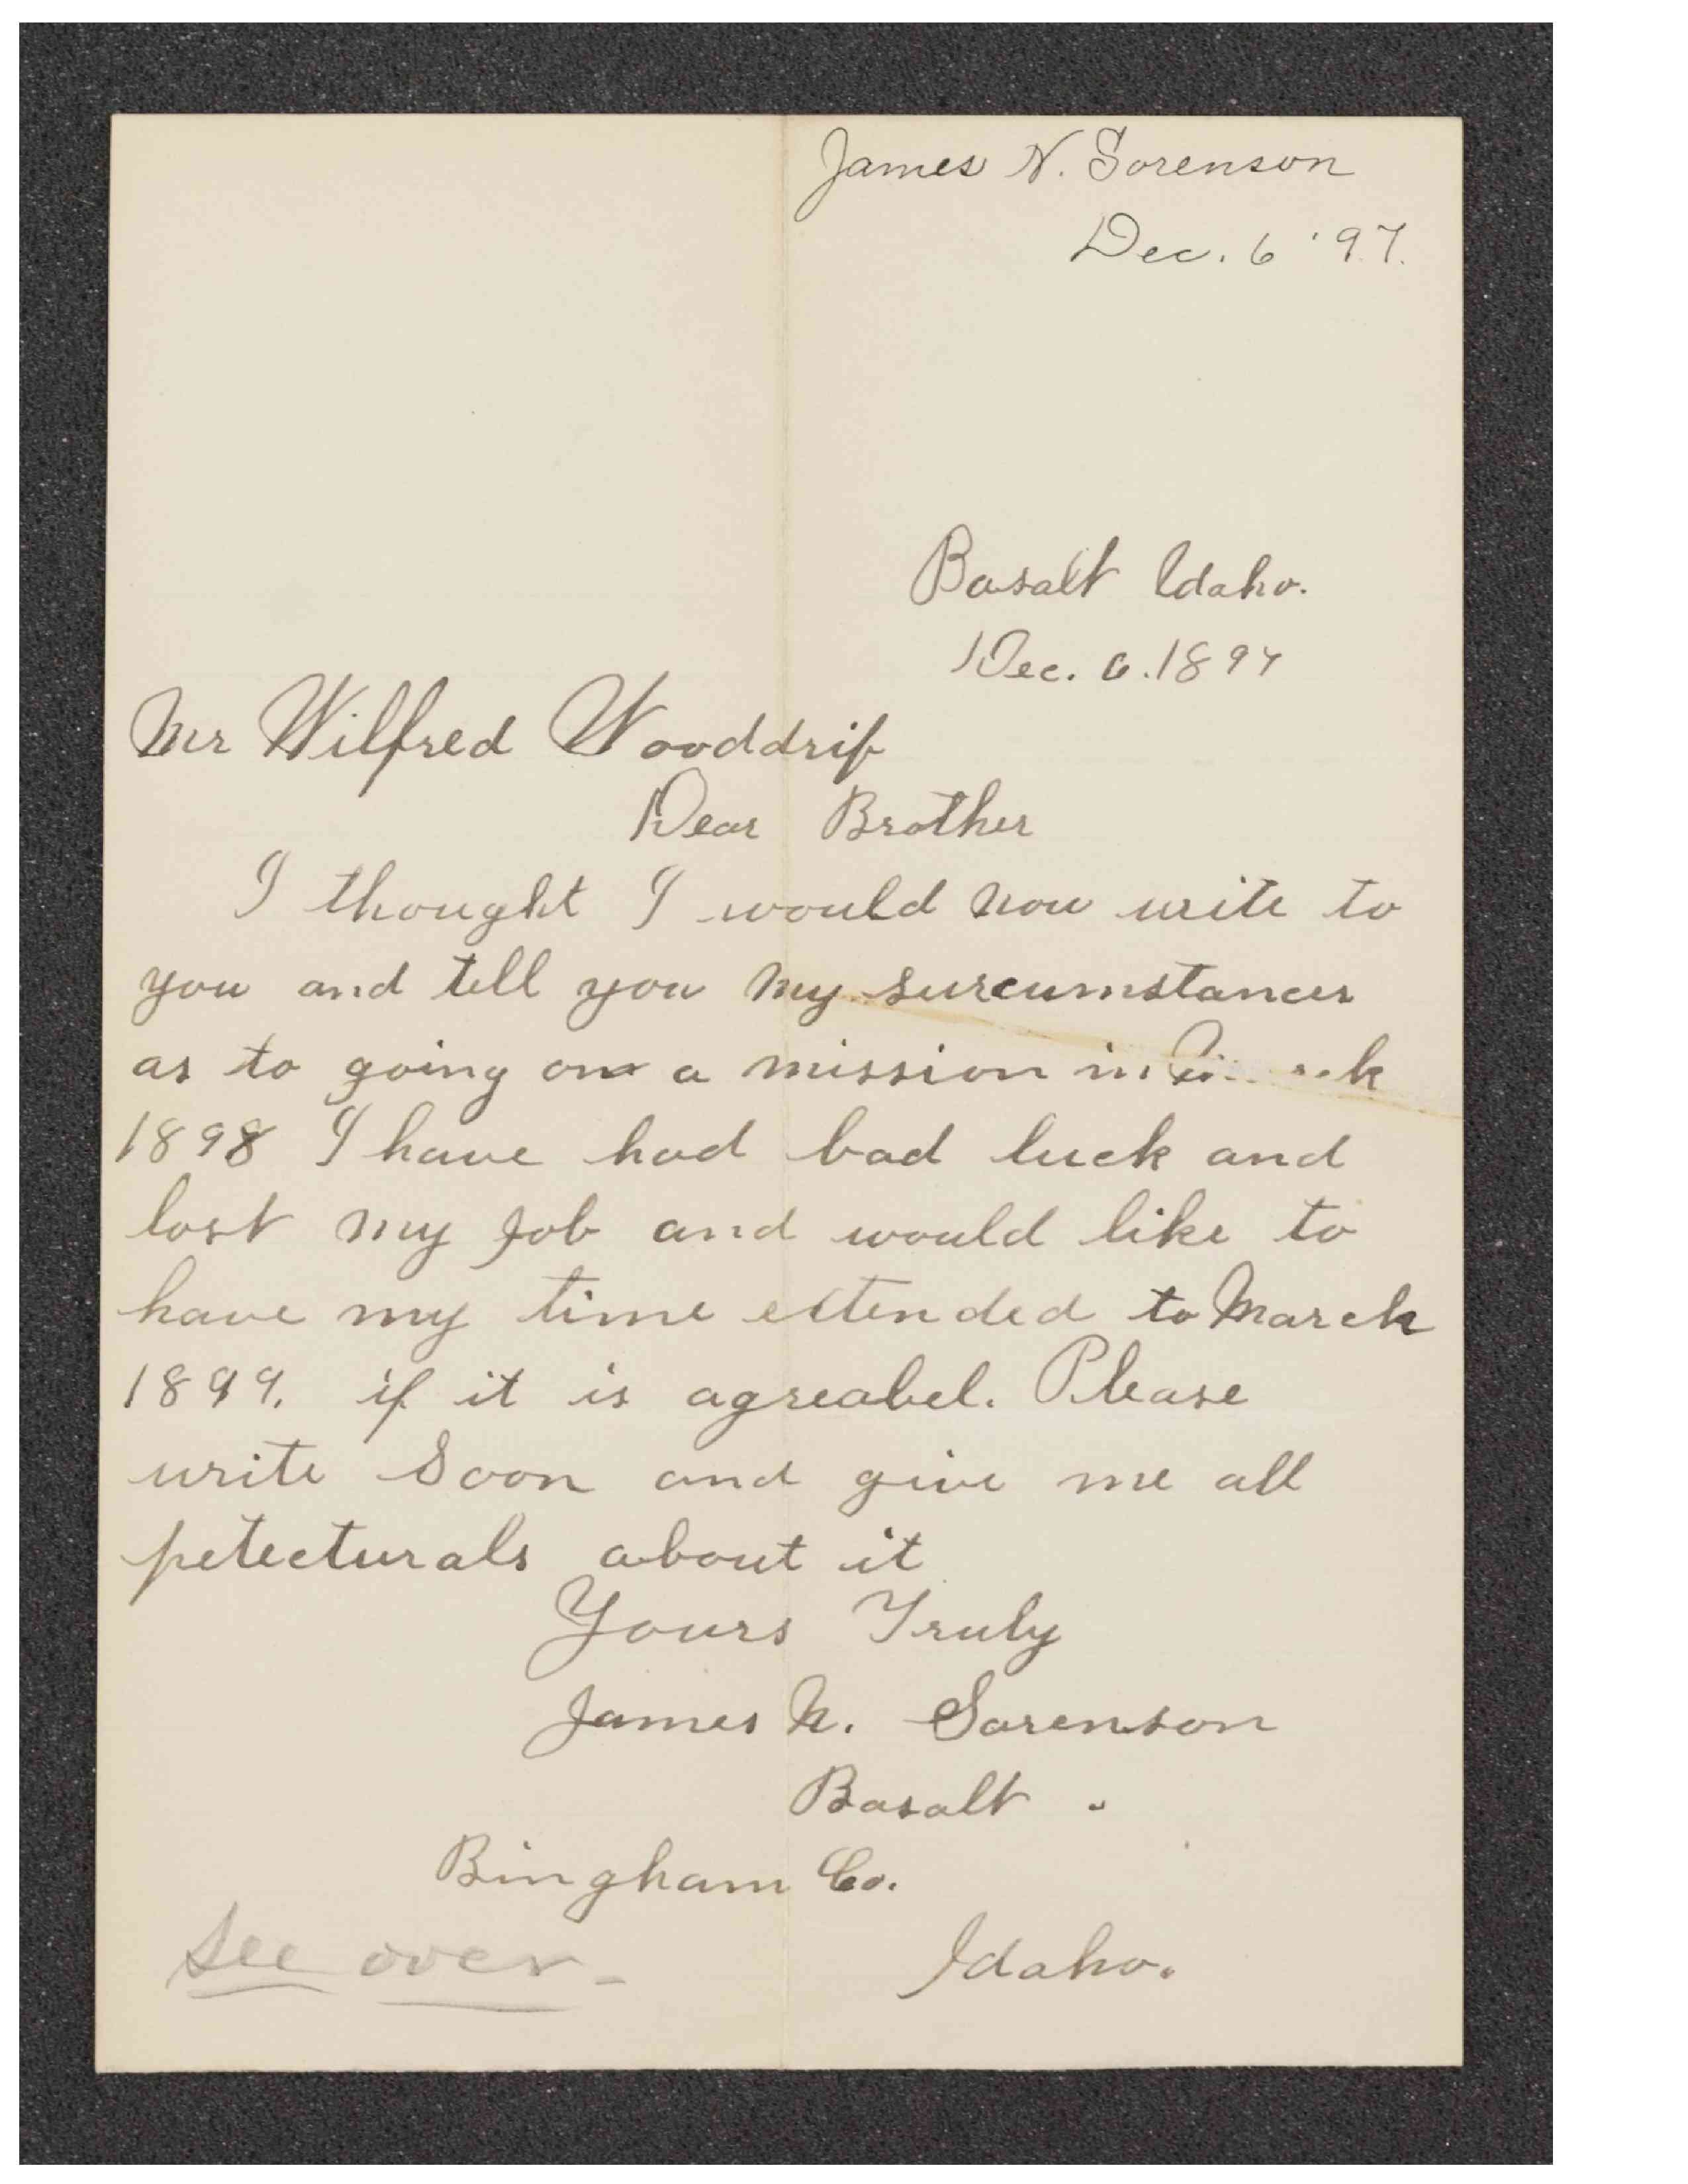 James N. Sorenson
Dec. 6 '97.
Basalt Idaho.
Dec. 6. 1897
Mr Wilfred Wooddrif
Dear Brother
I thought I would now write to
you and tell you my surcumstances
as to going on a mission in
1898 I have had bad luck and
lost my job and would like to
have my time extended to March
1899. if it is agreabel. Please
write Soon and give me all
petecturals about it
Yours Truly
James N. Sorenson
Basalt .
Bingham Co.
Idaho.
See over -